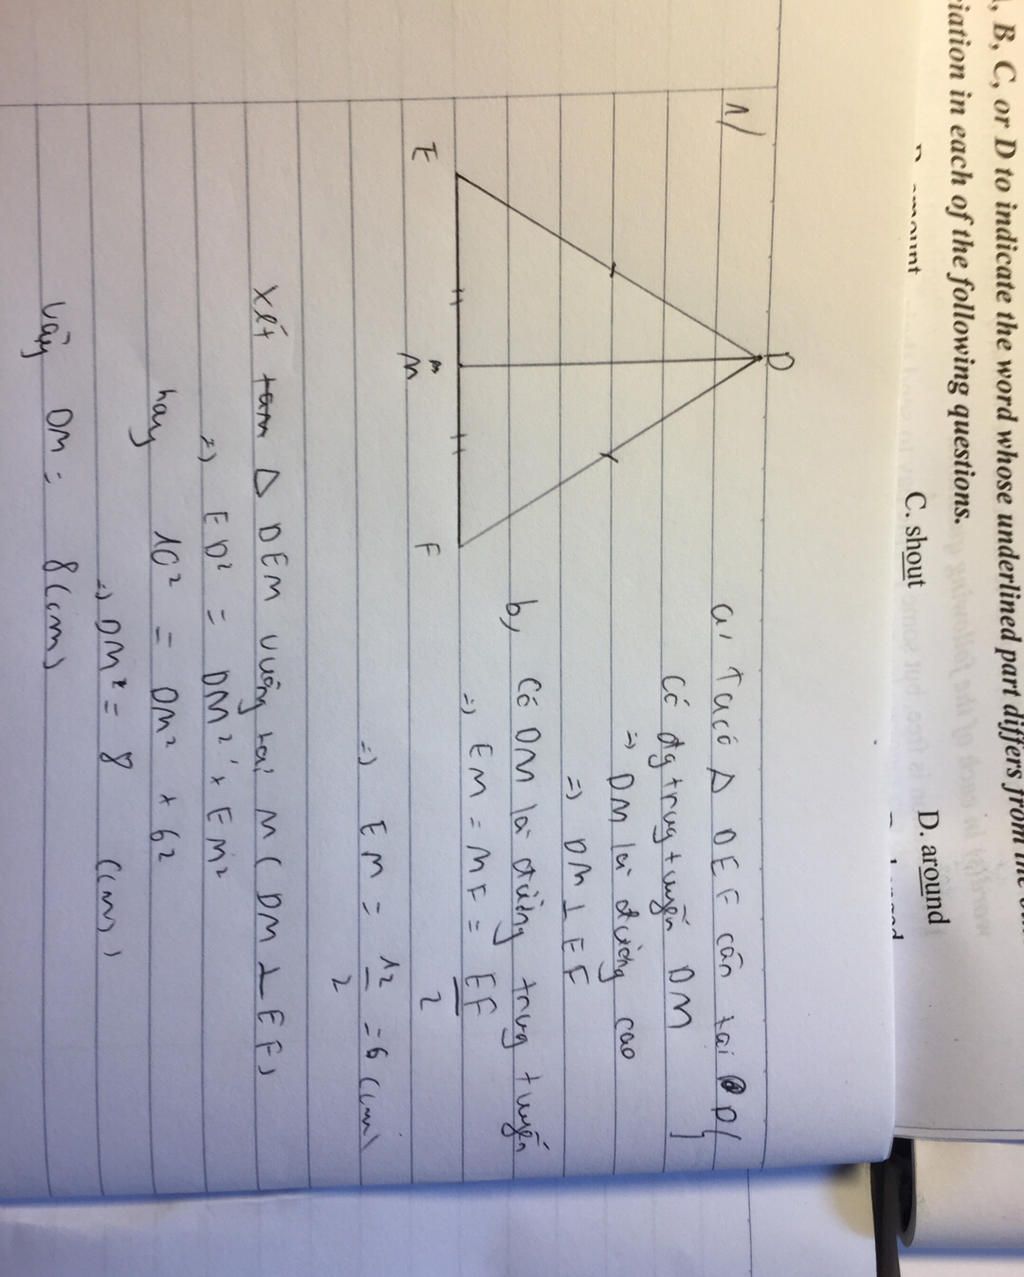 , B, C, or D to indicate the word whose underlined part differs from the
iation in each of the following questions.
C. shout
D. around
1/
D
E
M
F
a, Ta có Δ DEF cân tại D
Có đg trug tuyến DM
=> DM là đường cao
=> DM ⊥ EF
b, Có DM là đường trug tuyến
=> EM = MF = EF/2
=> EM = 12/2 = 6 (cm)
Xét tam Δ DEM vuông tại M ( DM ⊥ EF)
=> ED² = DM² + EM²
hay 10² = DM² + 6²
=> DM² = 8 (cm)
Vậy DM = 8 (cm)